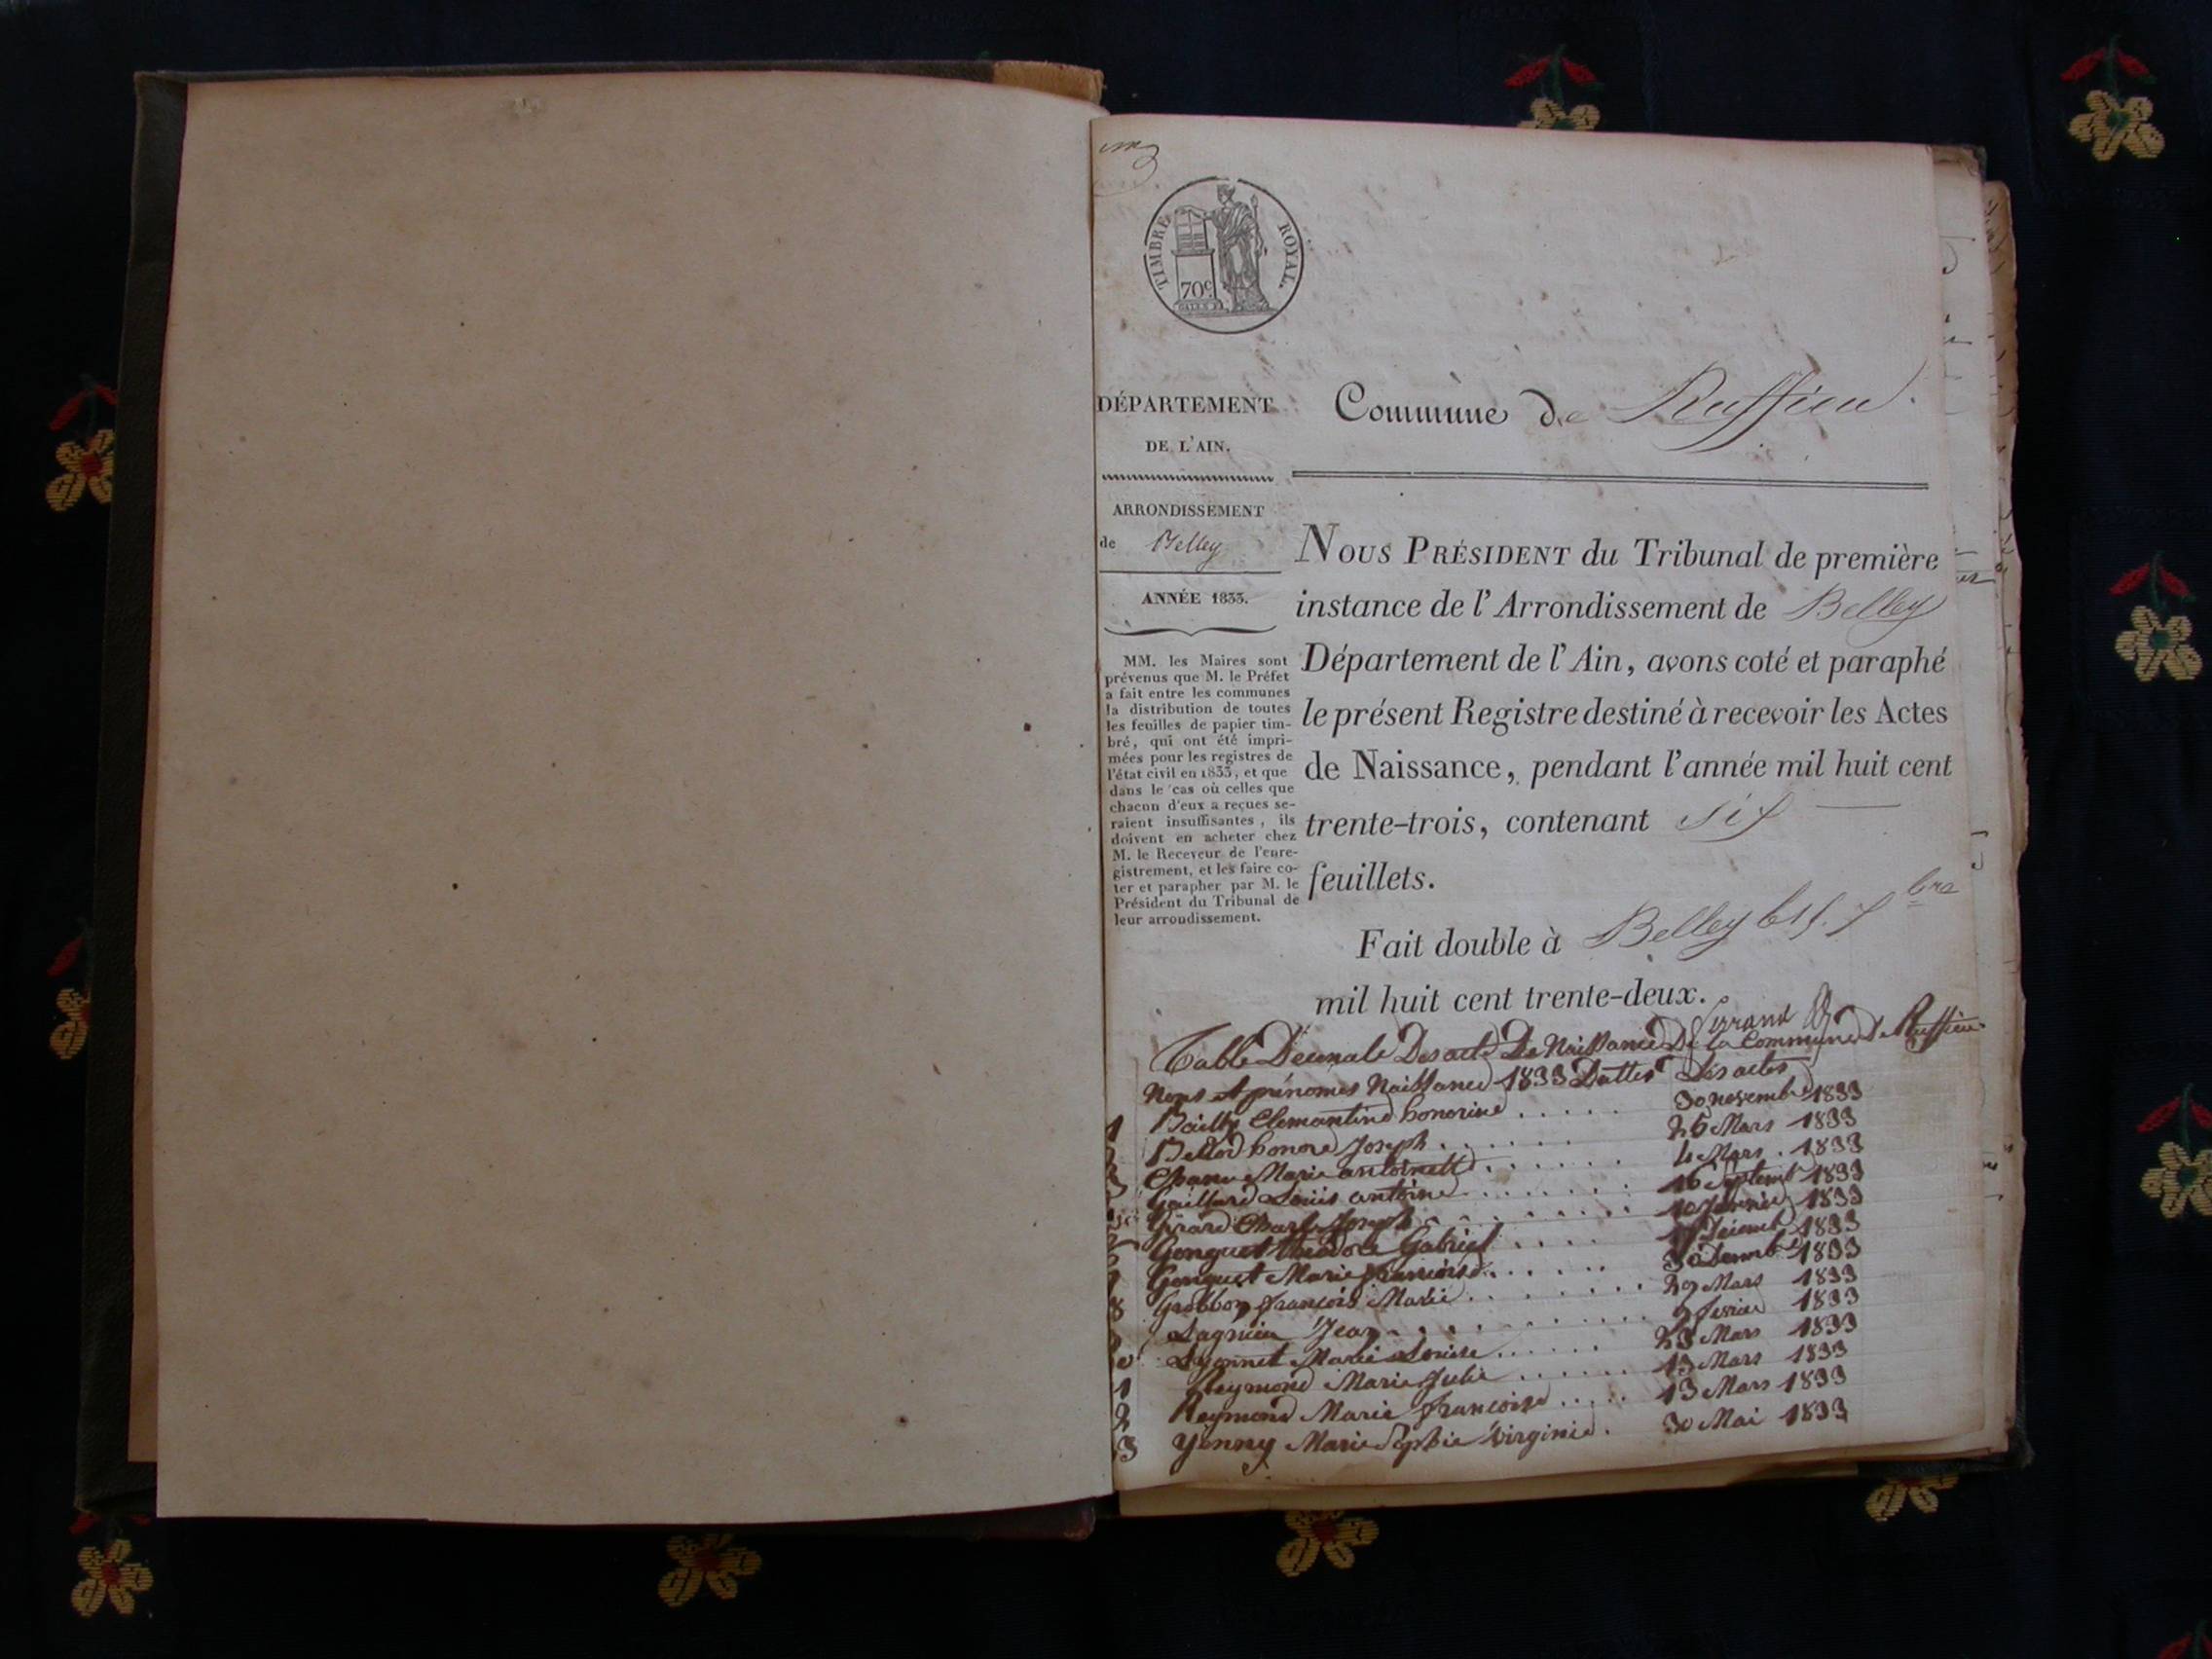 TIMBRE ROYAL.
70c
DÉPARTEMENT
DE L'AIN.
ARRONDISSEMENT
de Belley
ANNÉE 1833.
MM. les Maires sont
prévenus que M. le Préfet
a fait entre les communes
la distribution de toutes
les feuilles de papier tim-
bré, qui ont été impri-
mées pour les registres de
l'état civil en 1833, et que
dans le cas où celles que
chacun d'eux a reçues se-
raient insuffisantes, ils
doivent en acheter chez
M. le Receveur de l'enre-
gistrement, et les faire co-
ter et parapher par M. le
Président du Tribunal de
leur arrondissement.
Commune de Ruffieu.
NOUS PRÉSIDENT du Tribunal de première
instance de l'Arrondissement de Belley
Département de l'Ain, avons coté et paraphé
le présent Registre destiné à recevoir les Actes
de Naissance, pendant l'année mil huit cent
trente-trois, contenant six
feuillets.
Fait double à Belley
mil huit cent trente-deux.
Table Des acte De Naissance De la Commune De Ruffieu
Noms et prénomes Naissance 1833 Dattes Des actes
1 Bailly Clemantine honorine 30 novembre 1833
honoré Joseph 26 Mars 1833
3 Marie antoinette 4 Mars 1833
Gaillard Louis antoine 16 Septemb 1833
Girard Charle Joseph 10 Janvier 1833
Gonguet théodore Gabriel Decemb 1833
7 Gonguet Marie françoise 1833
8 Grobbon françois Marie 29 Mars 1833
Lagnieu Jean fevrier 1833
Lyonnet Marie Louise 23 Mars 1833
1 Reymond Marie Julie 13 Mars 1833
2 Reymond Marie françoise 13 Mars 1833
3 Yenny Marie Sophie Virginie 30 Mai 1833